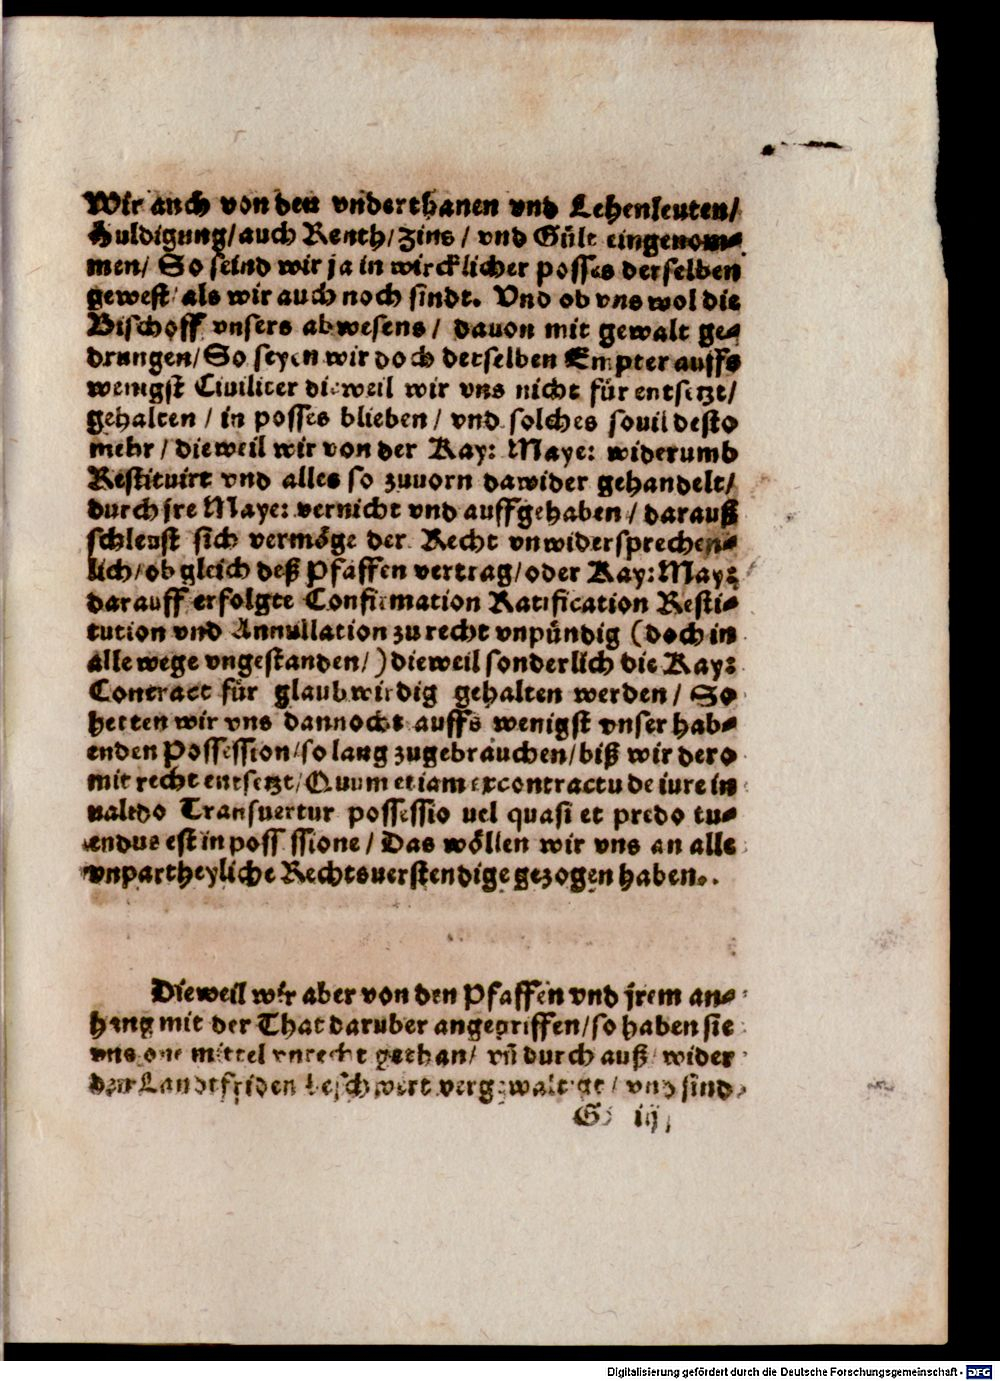 Wir auch von den vnderthanen vnd Lehenleuten/
Huldigung/auch Renth/Zins/ vnd Gült eingenom⸗
men/ So seind wir ja in wircklicher posses derselben
gewest/als wir auch noch sindt. Vnd ob vns wol die
Bischoff vnsers abwesens/ dauon mit gewalt ge⸗
drungen/So seyen wir doch derselben Empter auffs
wenigst Ciuiliter dieweil wir vns nicht für entsetzt/
gehalten / in posses blieben/ vnd solches souil desto
mehr/ dieweil wir von der Kay: Maye: widerumb
Restituirt vnd alles so zuuorn dawider gehandelt/
durch jre Maye: vernicht vnd auffgehaben/ darauß
schleust sich vermöge der Recht vnwidersprechen⸗
lich/ob gleich deß Pfaffen vertrag/oder Kay:May:
darauff erfolgte Confirmation Ratification Resti⸗
tution vnd Annullation zu recht vnpündig (doch in
alle wege vngestanden/) dieweil sonderlich die Kay:
Contract für glaubwirdig gehalten werden/ So
hetten wir vns dannocht auffs wenigst vnser hab⸗
enden Possession/so lang zugebrauchen/biß wir dero
mit recht entsetzt/Quum etiam ex contractu de iure in
ualido Transuertur possessio uel quasi et predo tu⸗
endus est in possessione/ Das wöllen wir vns an alle
vnpartheyliche Rechtsuerstendige gezogen haben..
Dieweil wir aber von den Pfaffen vnd jrem an⸗
hang mit der That darüber angegriffen/so haben sie
vns one mittel vnrecht gethan/ vñ durch auß wider
den Landtfriden beschwert vergewaltiget/ vnd sind
G iij
Digitalisierung gefördert durch die Deutsche Forschungsgemeinschaft - DFG